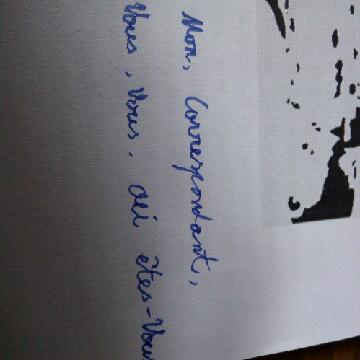 Mon, Correspondant,
Vous, Vous, où êtes-Vous